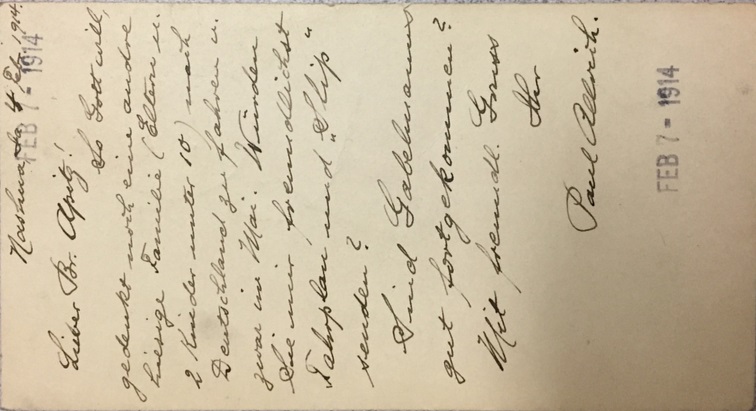 Nashua, Ia, 4 Feb. 1914.
FEB 7 - 1914
Lieber Br. Apitz!
So Gott will,
gedenkt noch eine andre
hiesige Familie (Eltern u.
2 Kinder unter 10) nach
Deutschland zu fahren u.
zwar im Mai. Würden
Sie mir freundlichst
Fahrplan und "Slip"
senden?
Sind Gabelmanns
gut fortgekommen?
Mit freundl. Gruss
Ihr
Paul Ullrich.
FEB 7 - 1914